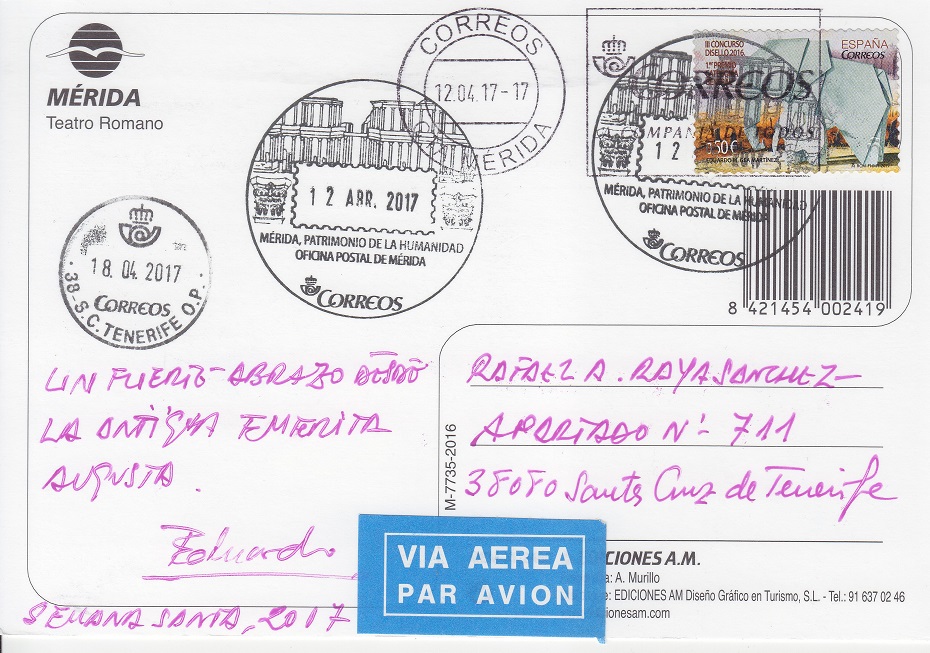 MÉRIDA
Teatro Romano
CORREOS
12.04.17-17
MÉRIDA
CORREOS
III CONCURSO
DISELLO 2016.
1er PREMIO
ESPAÑA
CORREOS
LA COMPAÑÍA DE TODOS
EDUARDO M. GEA MARTÍNEZ
12 ABR. 2017
MÉRIDA, PATRIMONIO DE LA HUMANIDAD
OFICINA POSTAL DE MÉRIDA
CORREOS
12
MÉRIDA, PATRIMONIO DE LA HUMANIDAD
OFICINA POSTAL DE MÉRIDA
CORREOS
18.04.2017
CORREOS
38-S.C. TENERIFE O.P.
8 421454 002419
UN FUERTE ABRAZO DESDE
LA ANTIGUA EMERITA
AUGUSTA.
Eduardo
SEMANA SANTA, 2017
RAFAEL A. RAYA SANCHEZ
APARTADO Nº- 711
38080 Santa Cruz de Tenerife
M-7735-2016
VIA AEREA
PAR AVION
CIONES A.M.
a: A. Murillo
e: EDICIONES AM Diseño Gráfico en Turismo, S.L. - Tel.: 91 637 02 46
cionesam.com